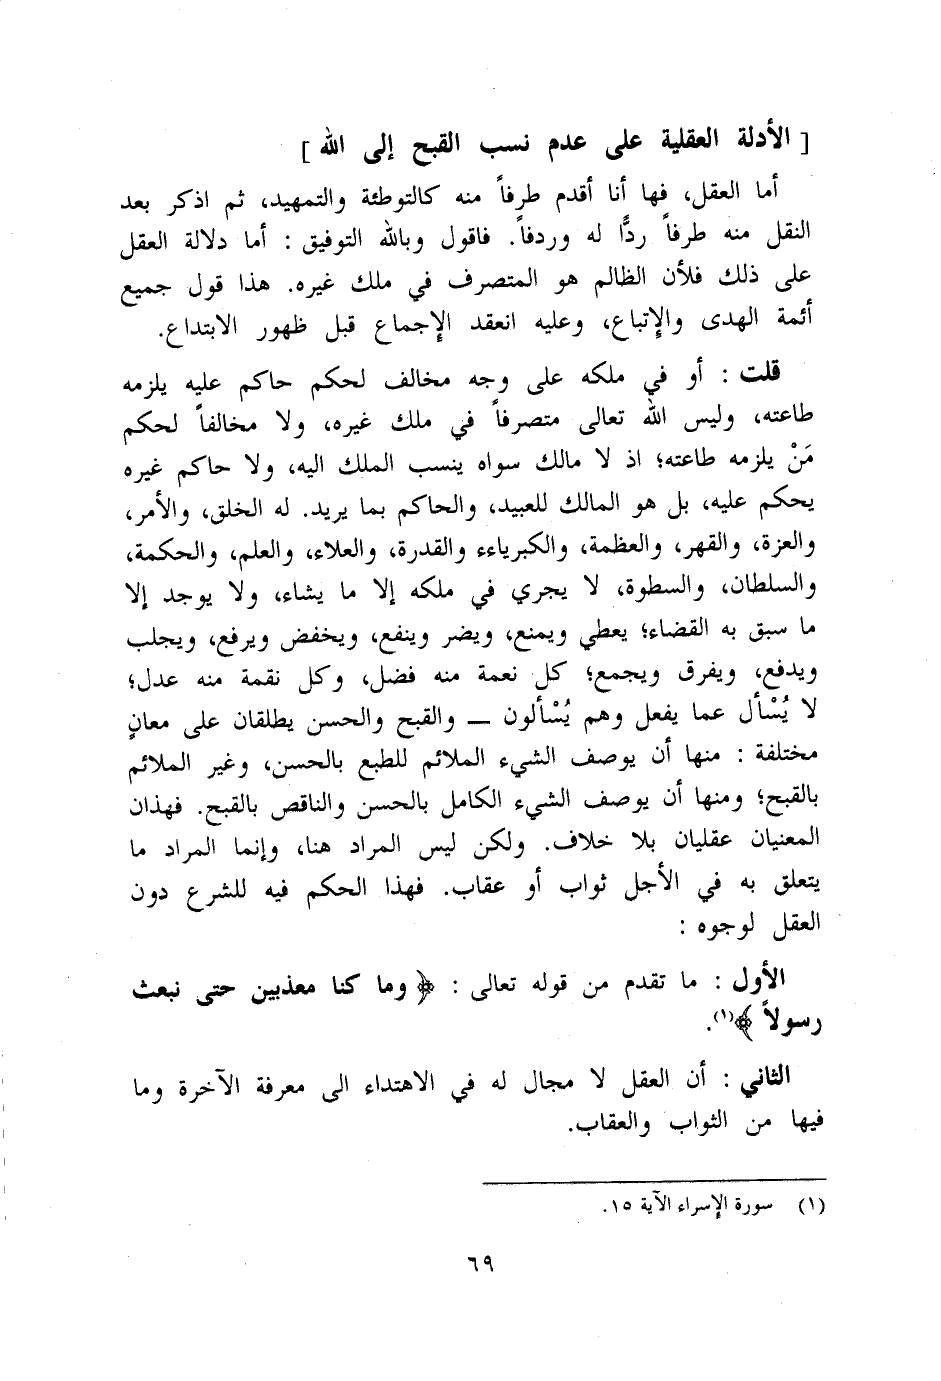 [ الأدلة العقلية على عدم نسب القبح إلى الله ]
أما العقل، فها أنا أقدم طرفاً منه كالتوطئة والتمهيد، ثم اذكر بعد
النقل منه طرفاً ردًّا له وردفاً. فاقول وبالله التوفيق : أما دلالة العقل
على ذلك فلأن الظالم هو المتصرف في ملك غيره. هذا قول جميع
أئمة الهدى والإتباع، وعليه انعقد الإجماع قبل ظهور الابتداع.
قلت : أو في ملكه على وجه مخالف لحكم حاكم عليه يلزمه
طاعته، وليس الله تعالى متصرفاً في ملك غيره، ولا مخالفاً لحكم
مَنْ يلزمه طاعته؛ اذ لا مالك سواه ينسب الملك اليه، ولا حاكم غيره
يحكم عليه، بل هو المالك للعبيد، والحاكم بما يريد. له الخلق، والأمر،
والعزة، والقهر، والعظمة، والكبرياءء والقدرة، والعلاء، والعلم، والحكمة،
والسلطان، والسطوة، لا يجري في ملكه إلا ما يشاء، ولا يوجد إلا
ما سبق به القضاء؛ يعطي ويمنع، ويضر وينفع، ويخفض ويرفع، ويجلب
ويدفع، ويفرق ويجمع؛ كل نعمة منه فضل، وكل نقمة منه عدل؛
لا يُسْأل عما يفعل وهم يُسْألون — والقبح والحسن يطلقان على معانٍ
مختلفة : منها أن يوصف الشيء الملائم للطبع بالحسن، وغير الملائم
بالقبح؛ ومنها أن يوصف الشيء الكامل بالحسن والناقص بالقبح. فهذان
المعنيان عقليان بلا خلاف. ولكن ليس المراد هنا، وإنما المراد ما
يتعلق به في الأجل ثواب أو عقاب. فهذا الحكم فيه للشرع دون
العقل لوجوه :
الأول : ما تقدم من قوله تعالى : ﴿ وما كنا معذبين حتى نبعث
رسولاً ﴾(١).
الثاني : أن العقل لا مجال له في الاهتداء الى معرفة الآخرة وما
فيها من الثواب والعقاب.
(١) سورة الإسراء الآية ١٥.
٦٩